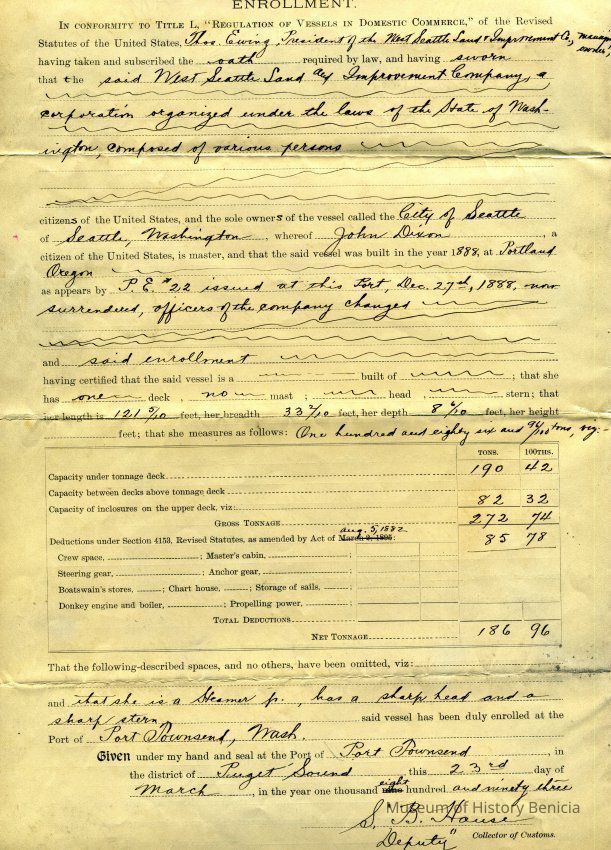 ENROLLMENT.
IN CONFORMITY TO TITLE L, "REGULATION OF VESSELS IN DOMESTIC COMMERCE," of the Revised
Statutes of the United States, Thos. Ewing, President of the West Seattle Land & Improvement Co., managing owner,
having taken and subscribed the oath required by law, and having sworn
that the said West Seattle Land and Improvement Company, a
corporation organized under the laws of the State of Wash-
ington, composed of various persons
citizens of the United States, and the sole owners of the vessel called the City of Seattle
of Seattle, Washington, whereof John Dixon, a
citizen of the United States, is master, and that the said vessel was built in the year 1888, at Portland
Oregon
as appears by P. E. #22 issued at this Port, Dec. 27th, 1888, now
surrendered, officers of the company changed
and said enrollment
having certified that the said vessel is a built of ; that she
has one deck, no mast; head, stern; that
her length is 121 5/10 feet, her breadth 33 2/10 feet, her depth 8 6/10 feet, her height
feet; that she measures as follows: One hundred and eighty six and 96/100 tons, viz:-
TONS. 100THS.
Capacity under tonnage deck 190 42
Capacity between decks above tonnage deck
Capacity of inclosures on the upper deck, viz: 82 32
GROSS TONNAGE 272 74
Aug. 5, 1882
Deductions under Section 4153, Revised Statutes, as amended by Act of March 2, 1895: 85 78
Crew space, ; Master's cabin,
Steering gear, ; Anchor gear,
Boatswain's stores, ; Chart house, ; Storage of sails,
Donkey engine and boiler, ; Propelling power,
TOTAL DEDUCTIONS
NET TONNAGE 186 96
That the following-described spaces, and no others, have been omitted, viz:
and that she is a Steamer, has a sharp head and a
sharp stern said vessel has been duly enrolled at the
Port of Port Townsend, Wash.
Given under my hand and seal at the Port of Port Townsend, in
the district of Puget Sound this 23rd day of
March, in the year one thousand eight hundred and ninety three
Museum of History Benicia
S. B. House
Deputy Collector of Customs.